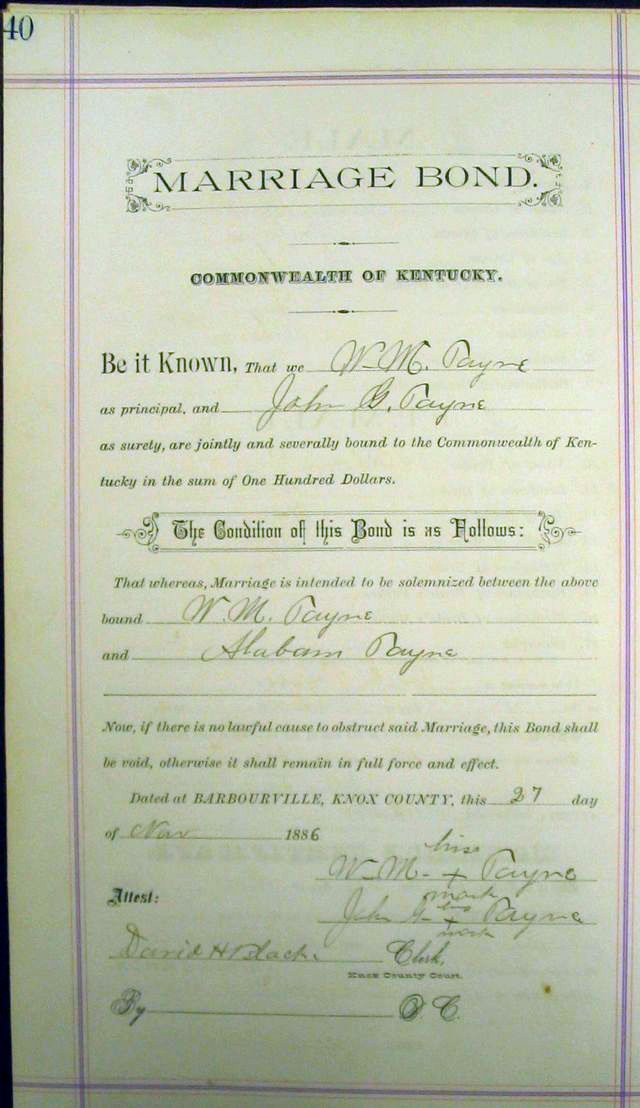 40
MARRIAGE BOND.
COMMONWEALTH OF KENTUCKY.
Be it Known, That we W. M. Payne
as principal, and John G. Payne
as surety, are jointly and severally bound to the Commonwealth of Ken-
tucky in the sum of One Hundred Dollars.
The Condition of this Bond is as Follows:
That whereas, Marriage is intended to be solemnized between the above
bound W. M. Payne
and Alabam Payne
Now, if there is no lawful cause to obstruct said Marriage, this Bond shall
be void, otherwise it shall remain in full force and effect.
Dated at BARBOURVILLE, KNOX COUNTY, this 27 day
of Nov 1886
his
W. M. + Payne
mark
Attest:
his
John G. + Payne
mark
David H Black Clerk,
Knox County Court.
By D. C.